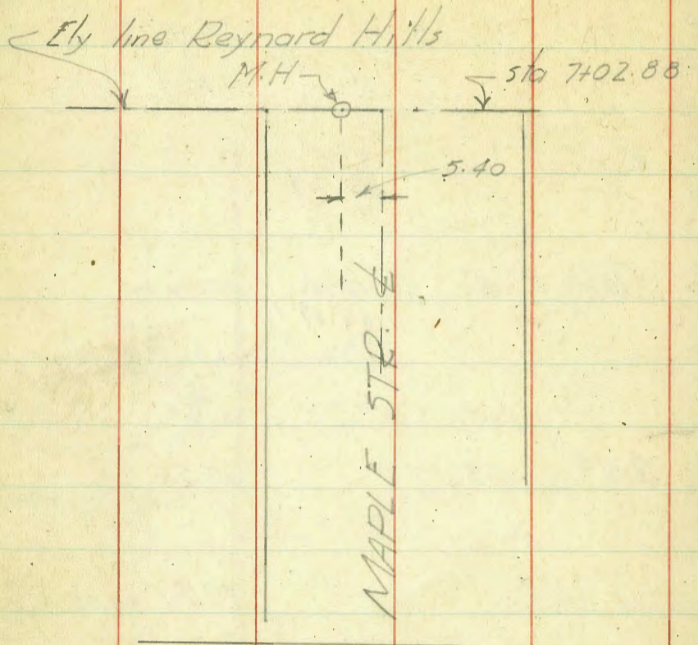 Ely line Reynard Hills
M.H
sta 7+02.88
5.40
MAPLE STR. ℄